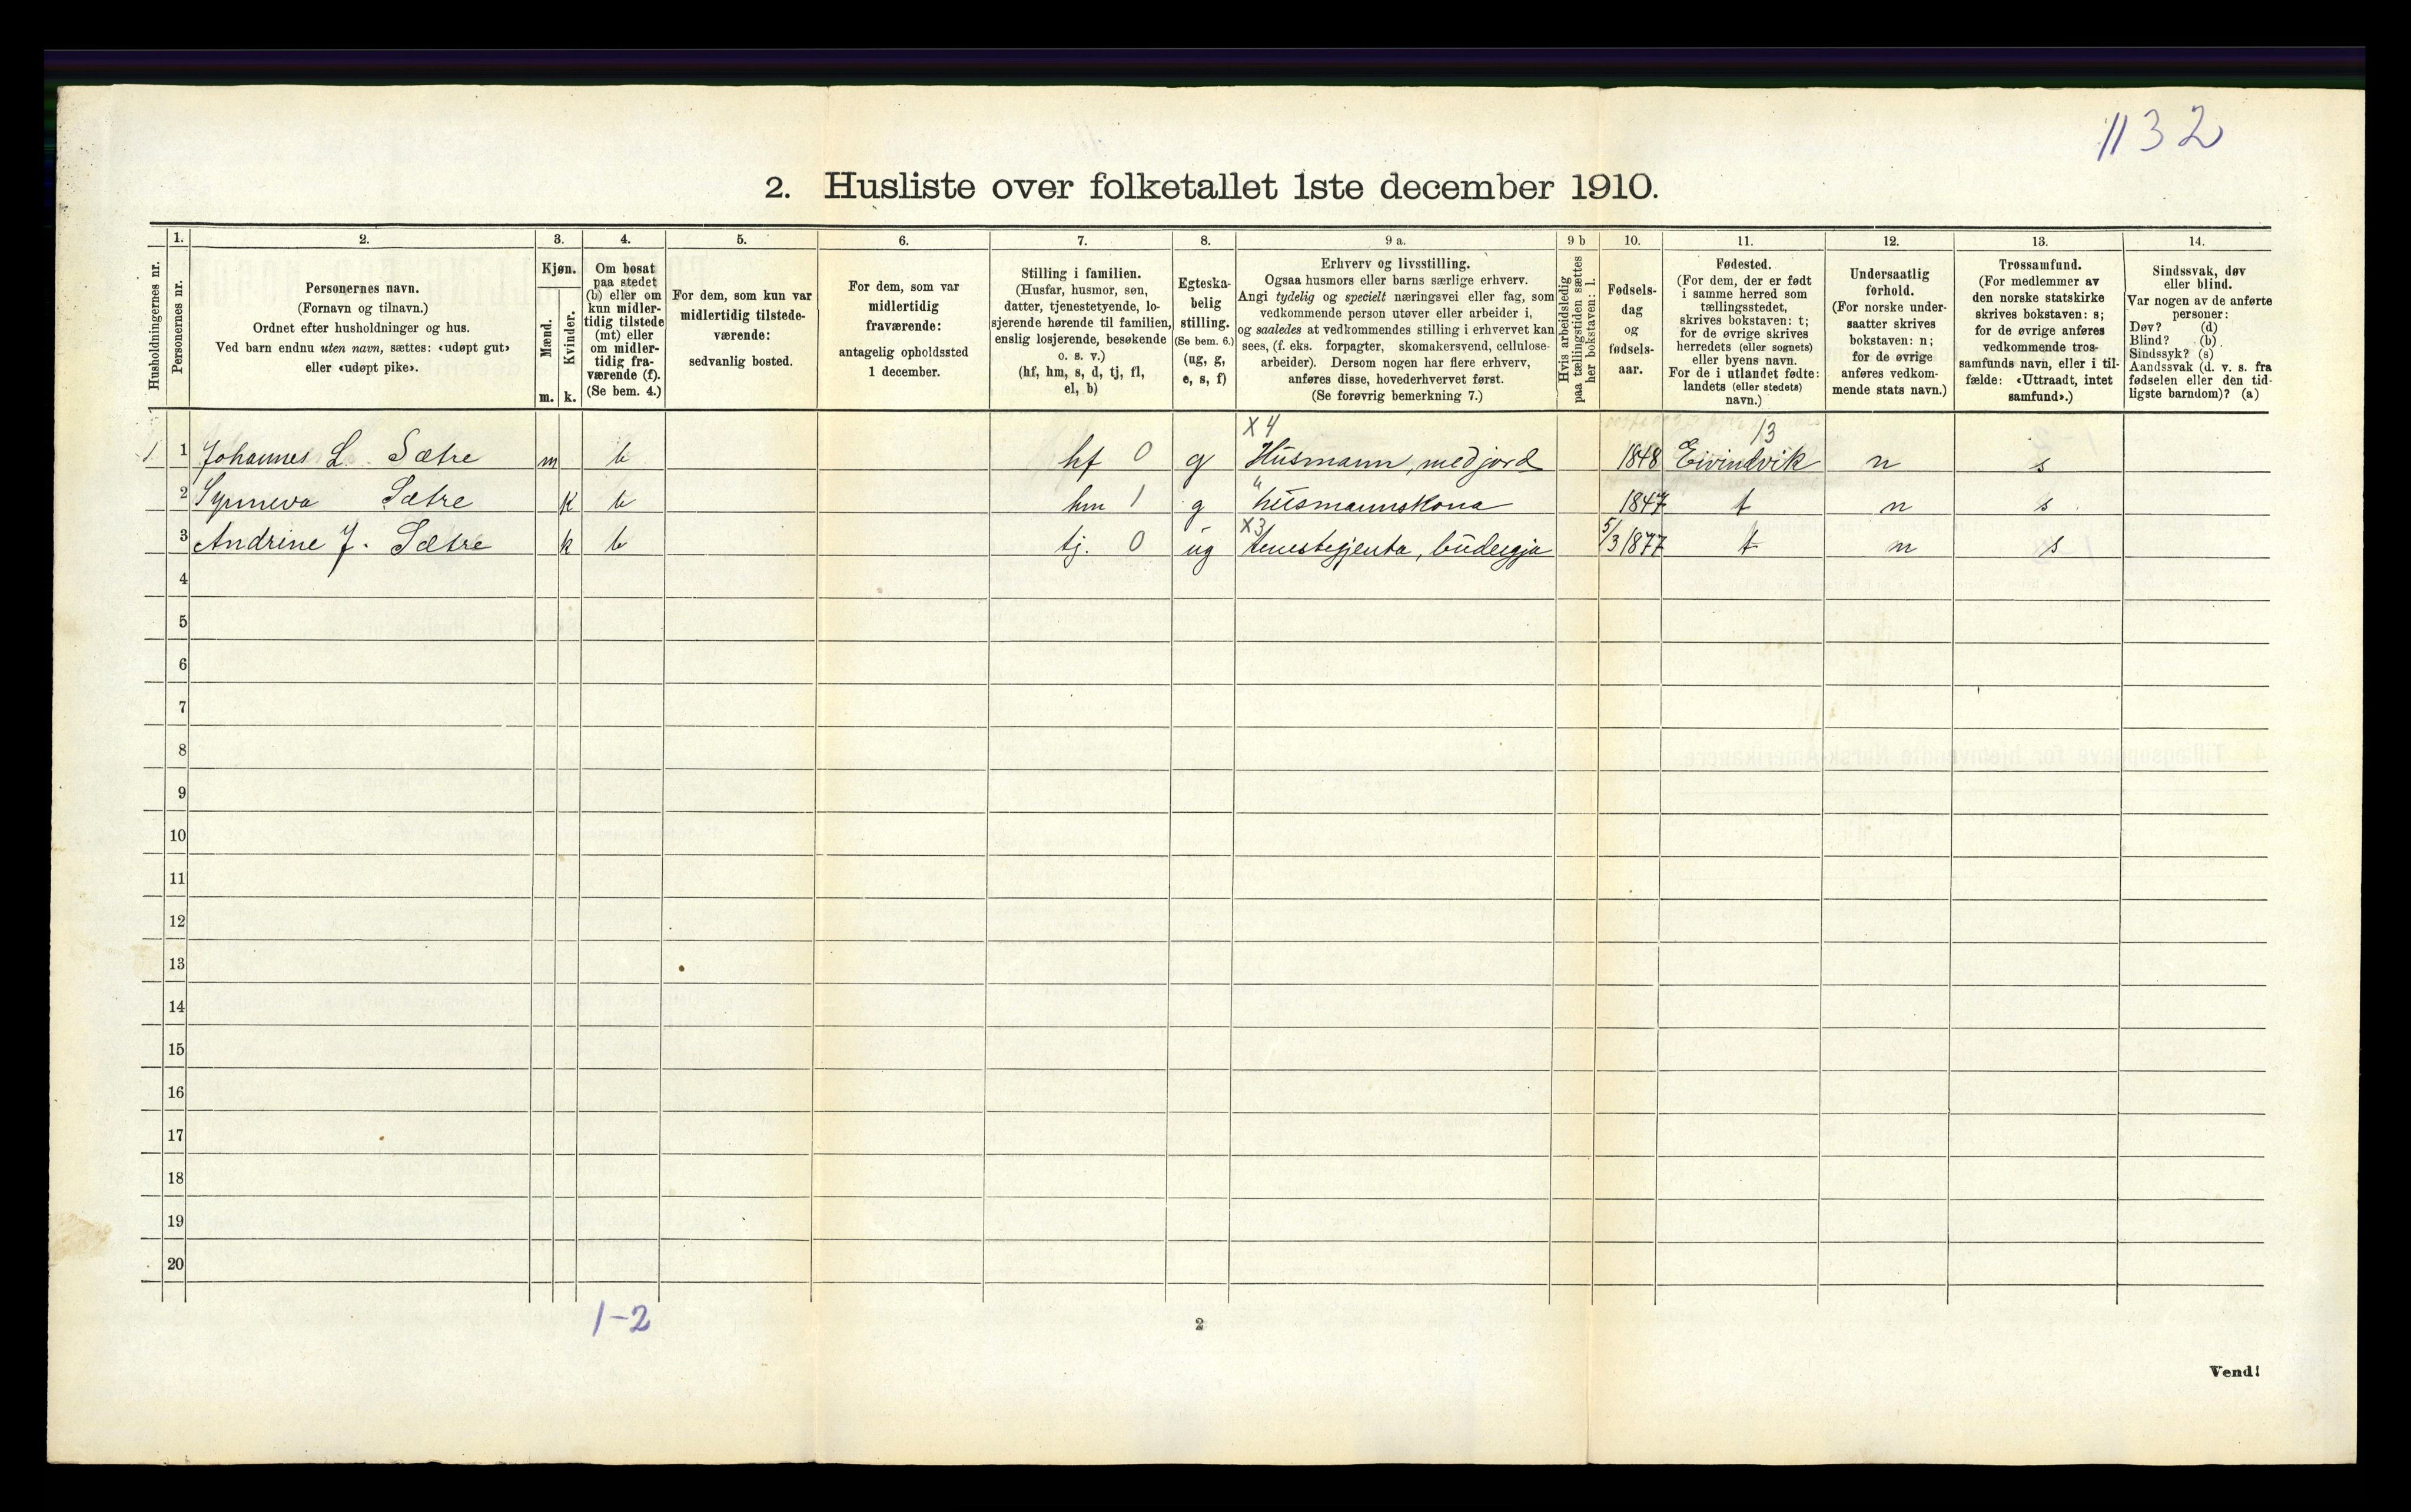 1132
2. Husliste over folketallet 1ste december 1910.
Husholdningernes nr.
1.
Personernes nr.
2.
Personernes navn.
(Fornavn og tilnavn.)
Ordnet efter husholdninger og hus.
Ved barn endnu uten navn, sættes: «udøpt gut»
eller «udøpt pike».
3.
Kjøn.
Mænd.
Kvinder.
m. k.
4.
Om bosat
paa stedet
(b) eller om
kun midler-
tidig tilstede
(mt) eller
om midler-
tidig fra-
værende (f).
(Se bem. 4.)
5.
For dem, som kun var
midlertidig tilstede-
værende:
sedvanlig bosted.
6.
For dem, som var
midlertidig
fraværende:
antagelig opholdssted
1 december.
7.
Stilling i familien.
(Husfar, husmor, søn,
datter, tjenestetyende, lo-
sjerende hørende til familien,
enslig losjerende, besøkende
o. s. v.)
(hf, hm, s, d, tj, fl,
el, b)
8.
Egteska-
belig
stilling.
(Se bem. 6.)
(ug, g,
e, s, f)
9 a.
Erhverv og livsstilling.
Ogsaa husmors eller barns særlige erhverv.
Angi tydelig og specielt næringsvei eller fag, som
vedkommende person utøver eller arbeider i,
og saaledes at vedkommendes stilling i erhvervet kan
sees, (f. eks. forpagter, skomakersvend, cellulose-
arbeider). Dersom nogen har flere erhverv,
anføres disse, hovederhvervet først.
(Se forøvrig bemerkning 7.)
9 b
Hvis arbeidsledig
paa tællingstiden sættes
her bokstaven: l.
10.
Fødsels-
dag
og
fødsels-
aar.
11.
Fødested.
(For dem, der er født
i samme herred som
tællingsstedet,
skrives bokstaven: t;
for de øvrige skrives
herredets (eller sognets)
eller byens navn.
For de i utlandet fødte:
landets (eller stedets)
navn.)
12.
Undersaatlig
forhold.
(For norske under-
saatter skrives
bokstaven: n;
for de øvrige
anføres vedkom-
mende stats navn.)
13.
Trossamfund.
(For medlemmer av
den norske statskirke
skrives bokstaven: s;
for de øvrige anføres
vedkommende tros-
samfunds navn, eller i til-
fælde: «Uttraadt, intet
samfund».)
14.
Sindssvak, døv
eller blind.
Var nogen av de anførte
personer:
Døv? (d)
Blind? (b)
Sindssyk? (s)
Aandssvak (d. v. s. fra
fødselen eller den tid-
ligste barndom)? (a)
X 4 13
1 1 Johannes L. Sætre m b hf 0 g Husmann, med jord 1848 Eivindvik n s
2 Synneva Sætre k b hm 1 g " husmannskona 1847 t n s
X3
3 Andrine J. Sætre k b tj. 0 ug tenestegjenta, budeigja 5/3 1877 t n s
4
5
6
7
8
9
10
11
12
13
14
15
16
17
18
19
20
1-2
2
Vend!